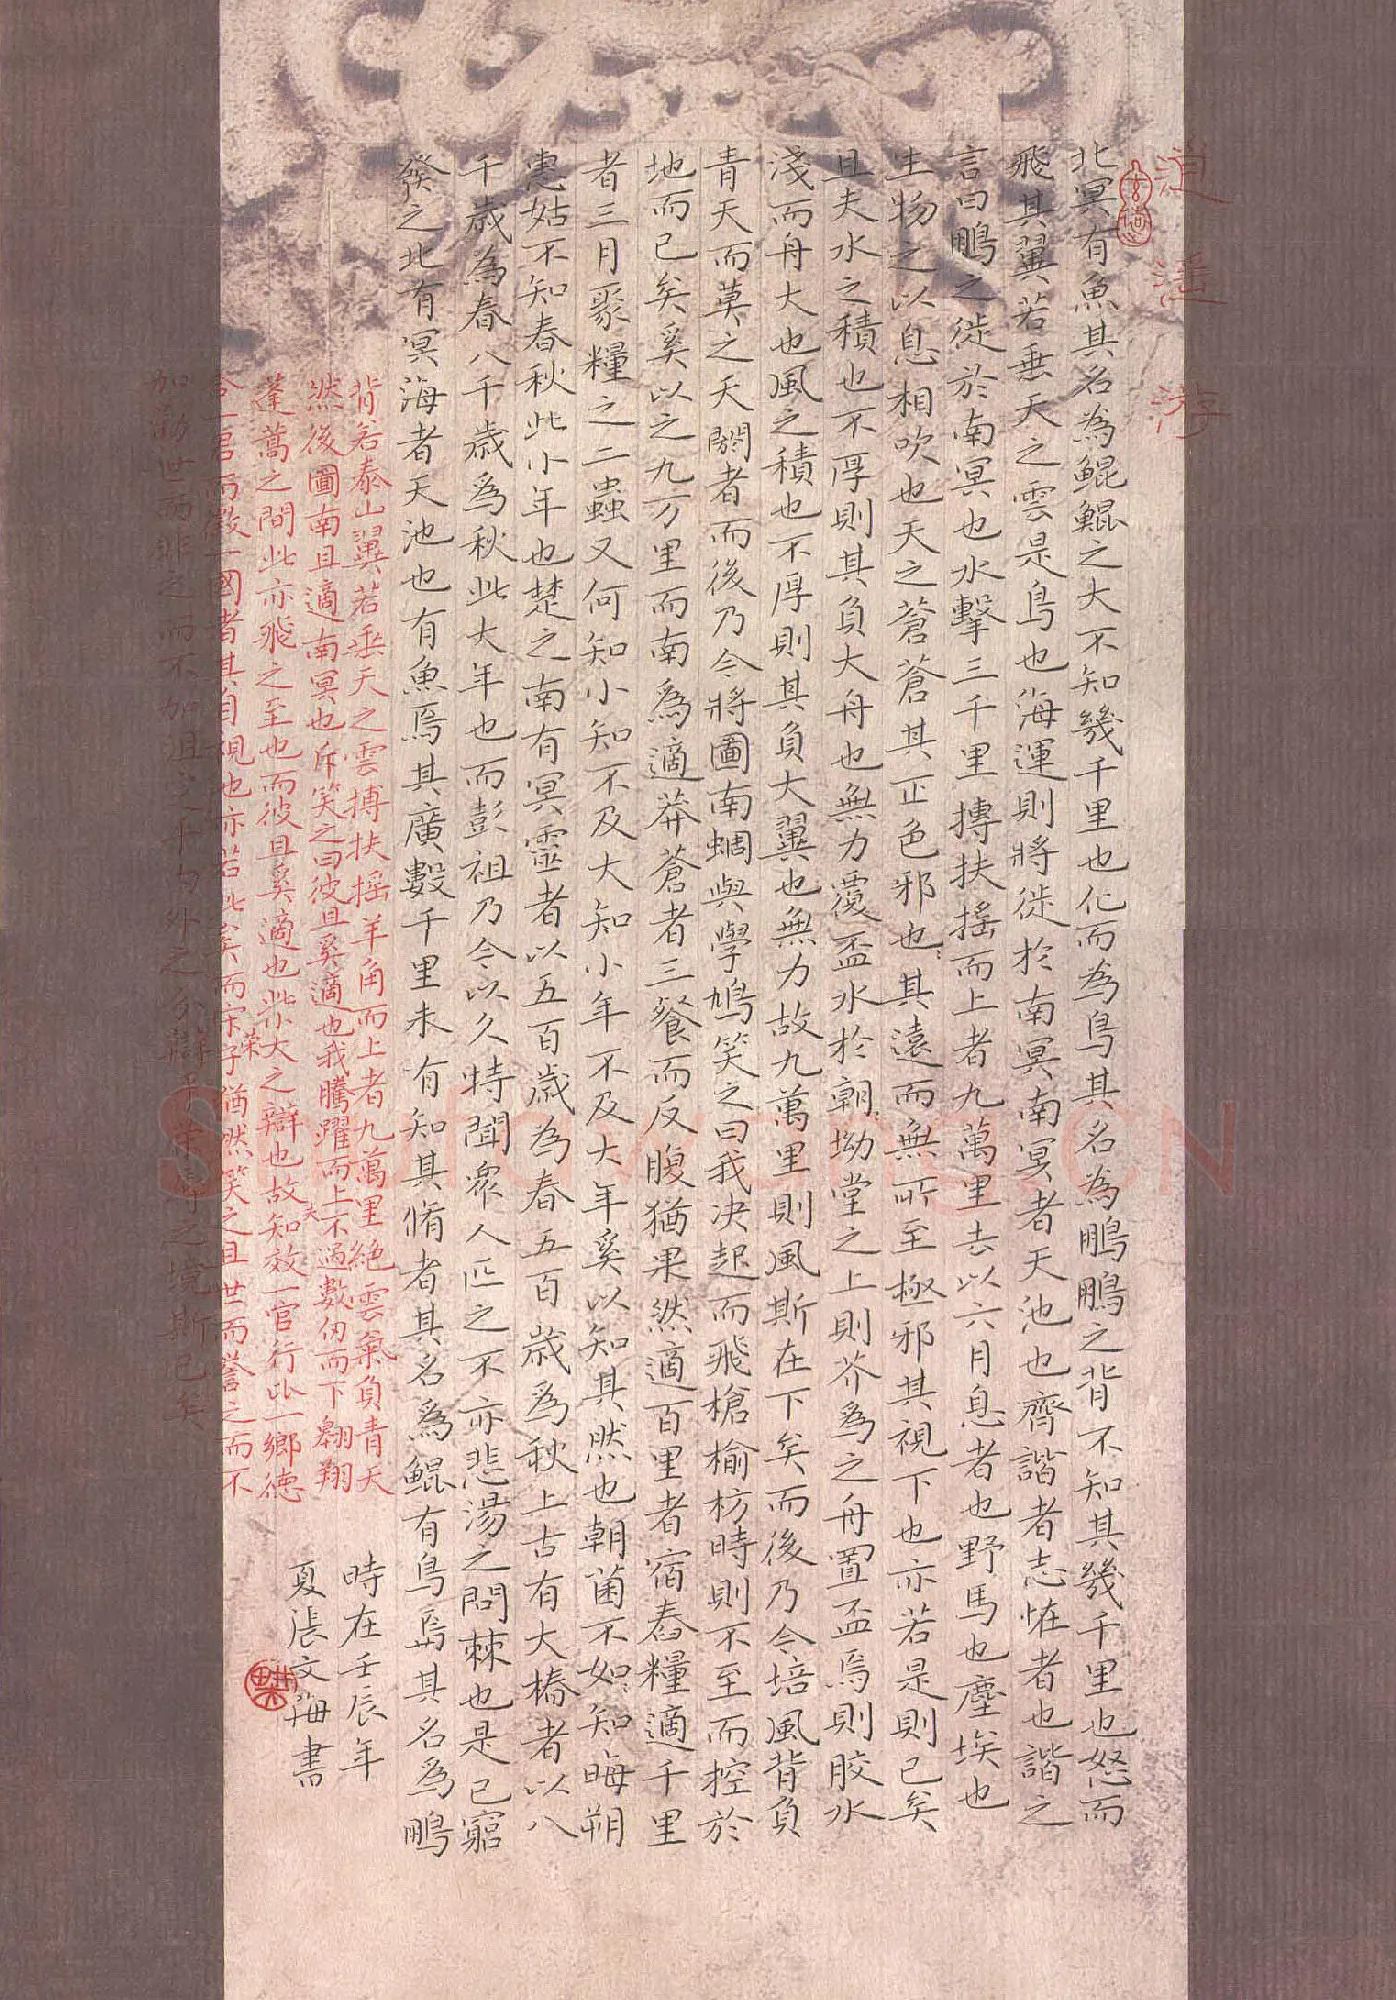 逍遥游
北冥有魚其名為鯤鯤之大不知幾千里也化而為鳥其名為鵬鵬之背不知其幾千里也怒而
飛其翼若垂天之雲是鳥也海運則將徙於南冥南冥者天池也齊諧者志怪者也諧之
言曰鵬之徙於南冥也水擊三千里摶扶搖而上者九萬里去以六月息者也野馬也塵埃也
生物之以息相吹也天之蒼蒼其正色邪也其遠而無所至極邪其視下也亦若是則已矣
且夫水之積也不厚則其負大舟也無力覆盃水於朝坳堂之上則芥為之舟置盃焉則膠水
淺而舟大也風之積也不厚則其負大翼也無力故九萬里則風斯在下矣而後乃今培風背負
青天而莫之夭閼者而後乃今將圖南蜩與學鳩笑之曰我決起而飛槍榆枋時則不至而控於
地而已矣奚以之九万里而南為適莽蒼者三餐而反腹猶果然適百里者宿舂糧適千里
者三月聚糧之二蟲又何知小知不及大知小年不及大年奚以知其然也朝菌不如知晦朔
惠姑不知春秋此小年也楚之南有冥靈者以五百歲為春五百歲為秋上古有大椿者以八
千歲為春八千歲為秋此大年也而彭祖乃今以久特聞衆人匹之不亦悲湯之問棘也是已窮
發之北有冥海者天池也有魚焉其廣數千里未有知其脩者其名為鯤有鳥焉其名為鵬
背若泰山翼若垂天之雲搏扶搖羊角而上者九萬里絕雲氣負青天
然後圖南且適南冥也斥笑之曰彼且奚適也我騰躍而上不過數仞而下翱翔
蓬蒿之間此亦飛之至也而彼且奚適也此小大之辯也故夫知效一官行比一鄉德
合一君而徵一國者其自視也亦若此矣而宋榮子猶然笑之且世而譽之而不
加勸世而非之而不加沮定乎內外之分辯乎榮辱之境斯已矣
時在壬辰年
夏張文海書